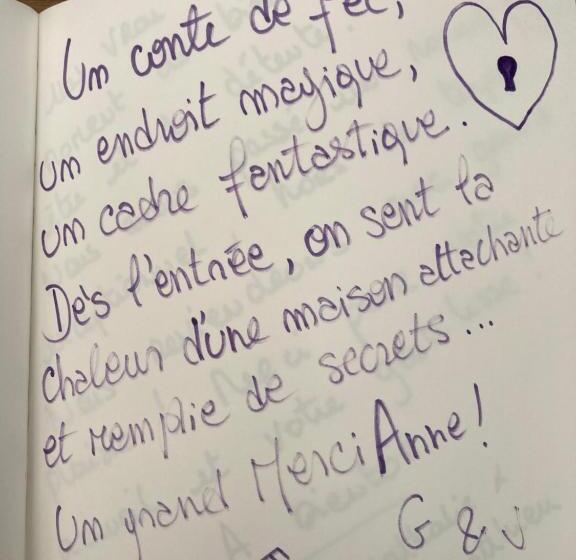 Un conte de fée,
un endroit magique,
un cadre fantastique.
Dès l'entrée, on sent la
chaleur d'une maison attachante
et remplie de secrets...
Un grand Merci Anne!
G & J